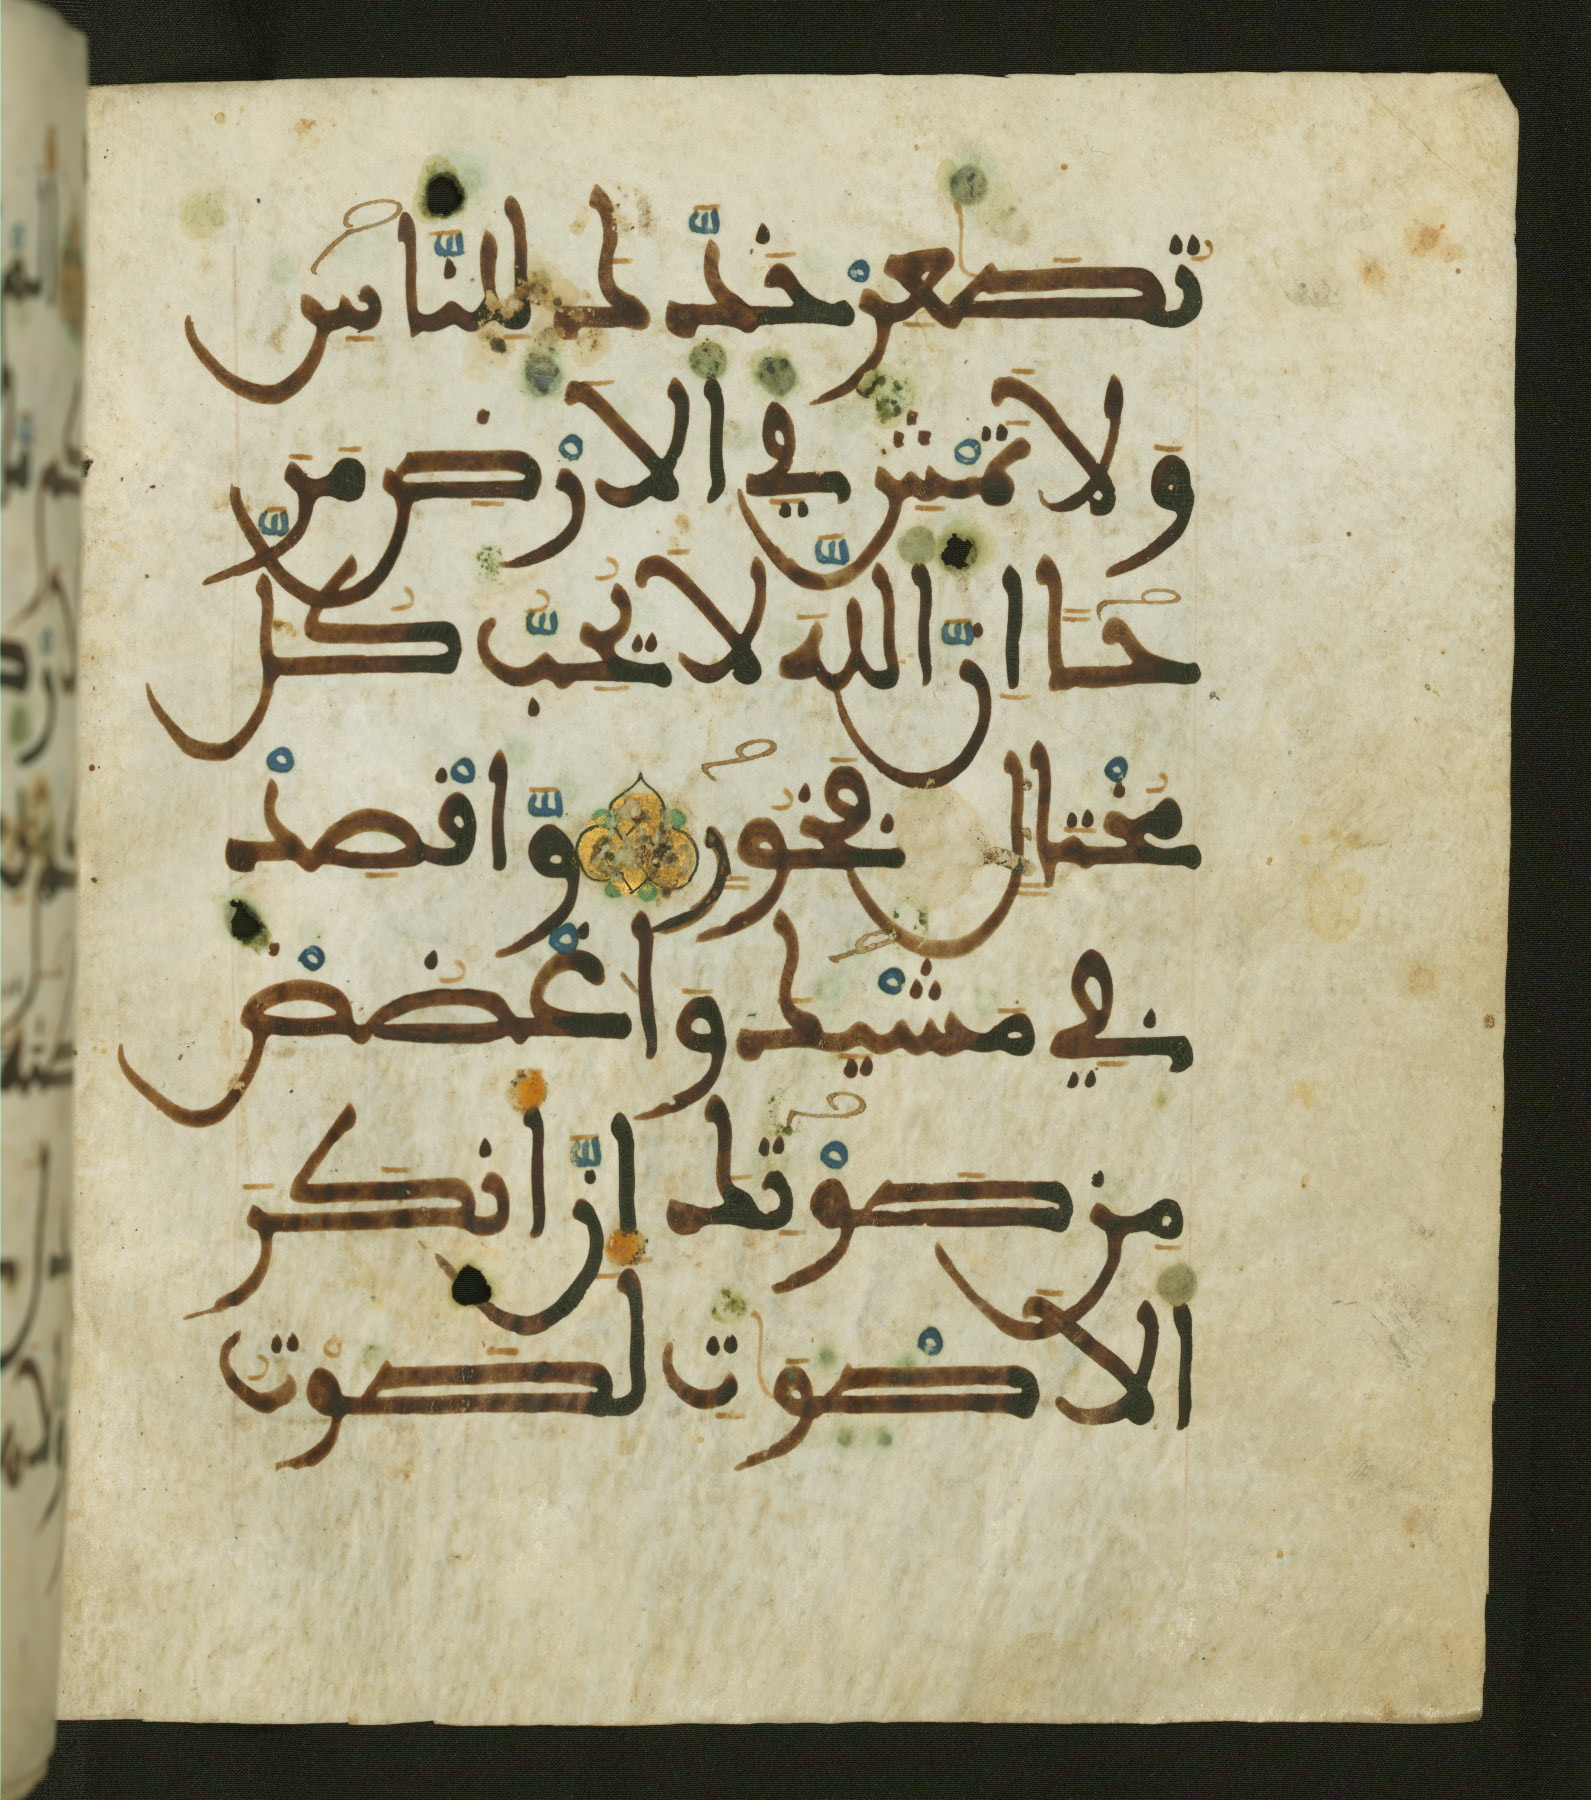 تُصَٰعِرْ خَدَّكَ لِلنَّاسِ
وَلَا تَمْشِ فِي الَارْضِ مَرَ
حًا اِنَّ اللَّهَ لَا يُحِبُّ كُلَّ
مُخْتَالٍ فَخُورٍ وَّاقْصِدْ
فِي مَشْيِكَ وَاغْضُضْ
مِن صَوْتِكَ اِنَّ أَنكَرَ
الَاصْوَٰتِ لَصَوْتُ